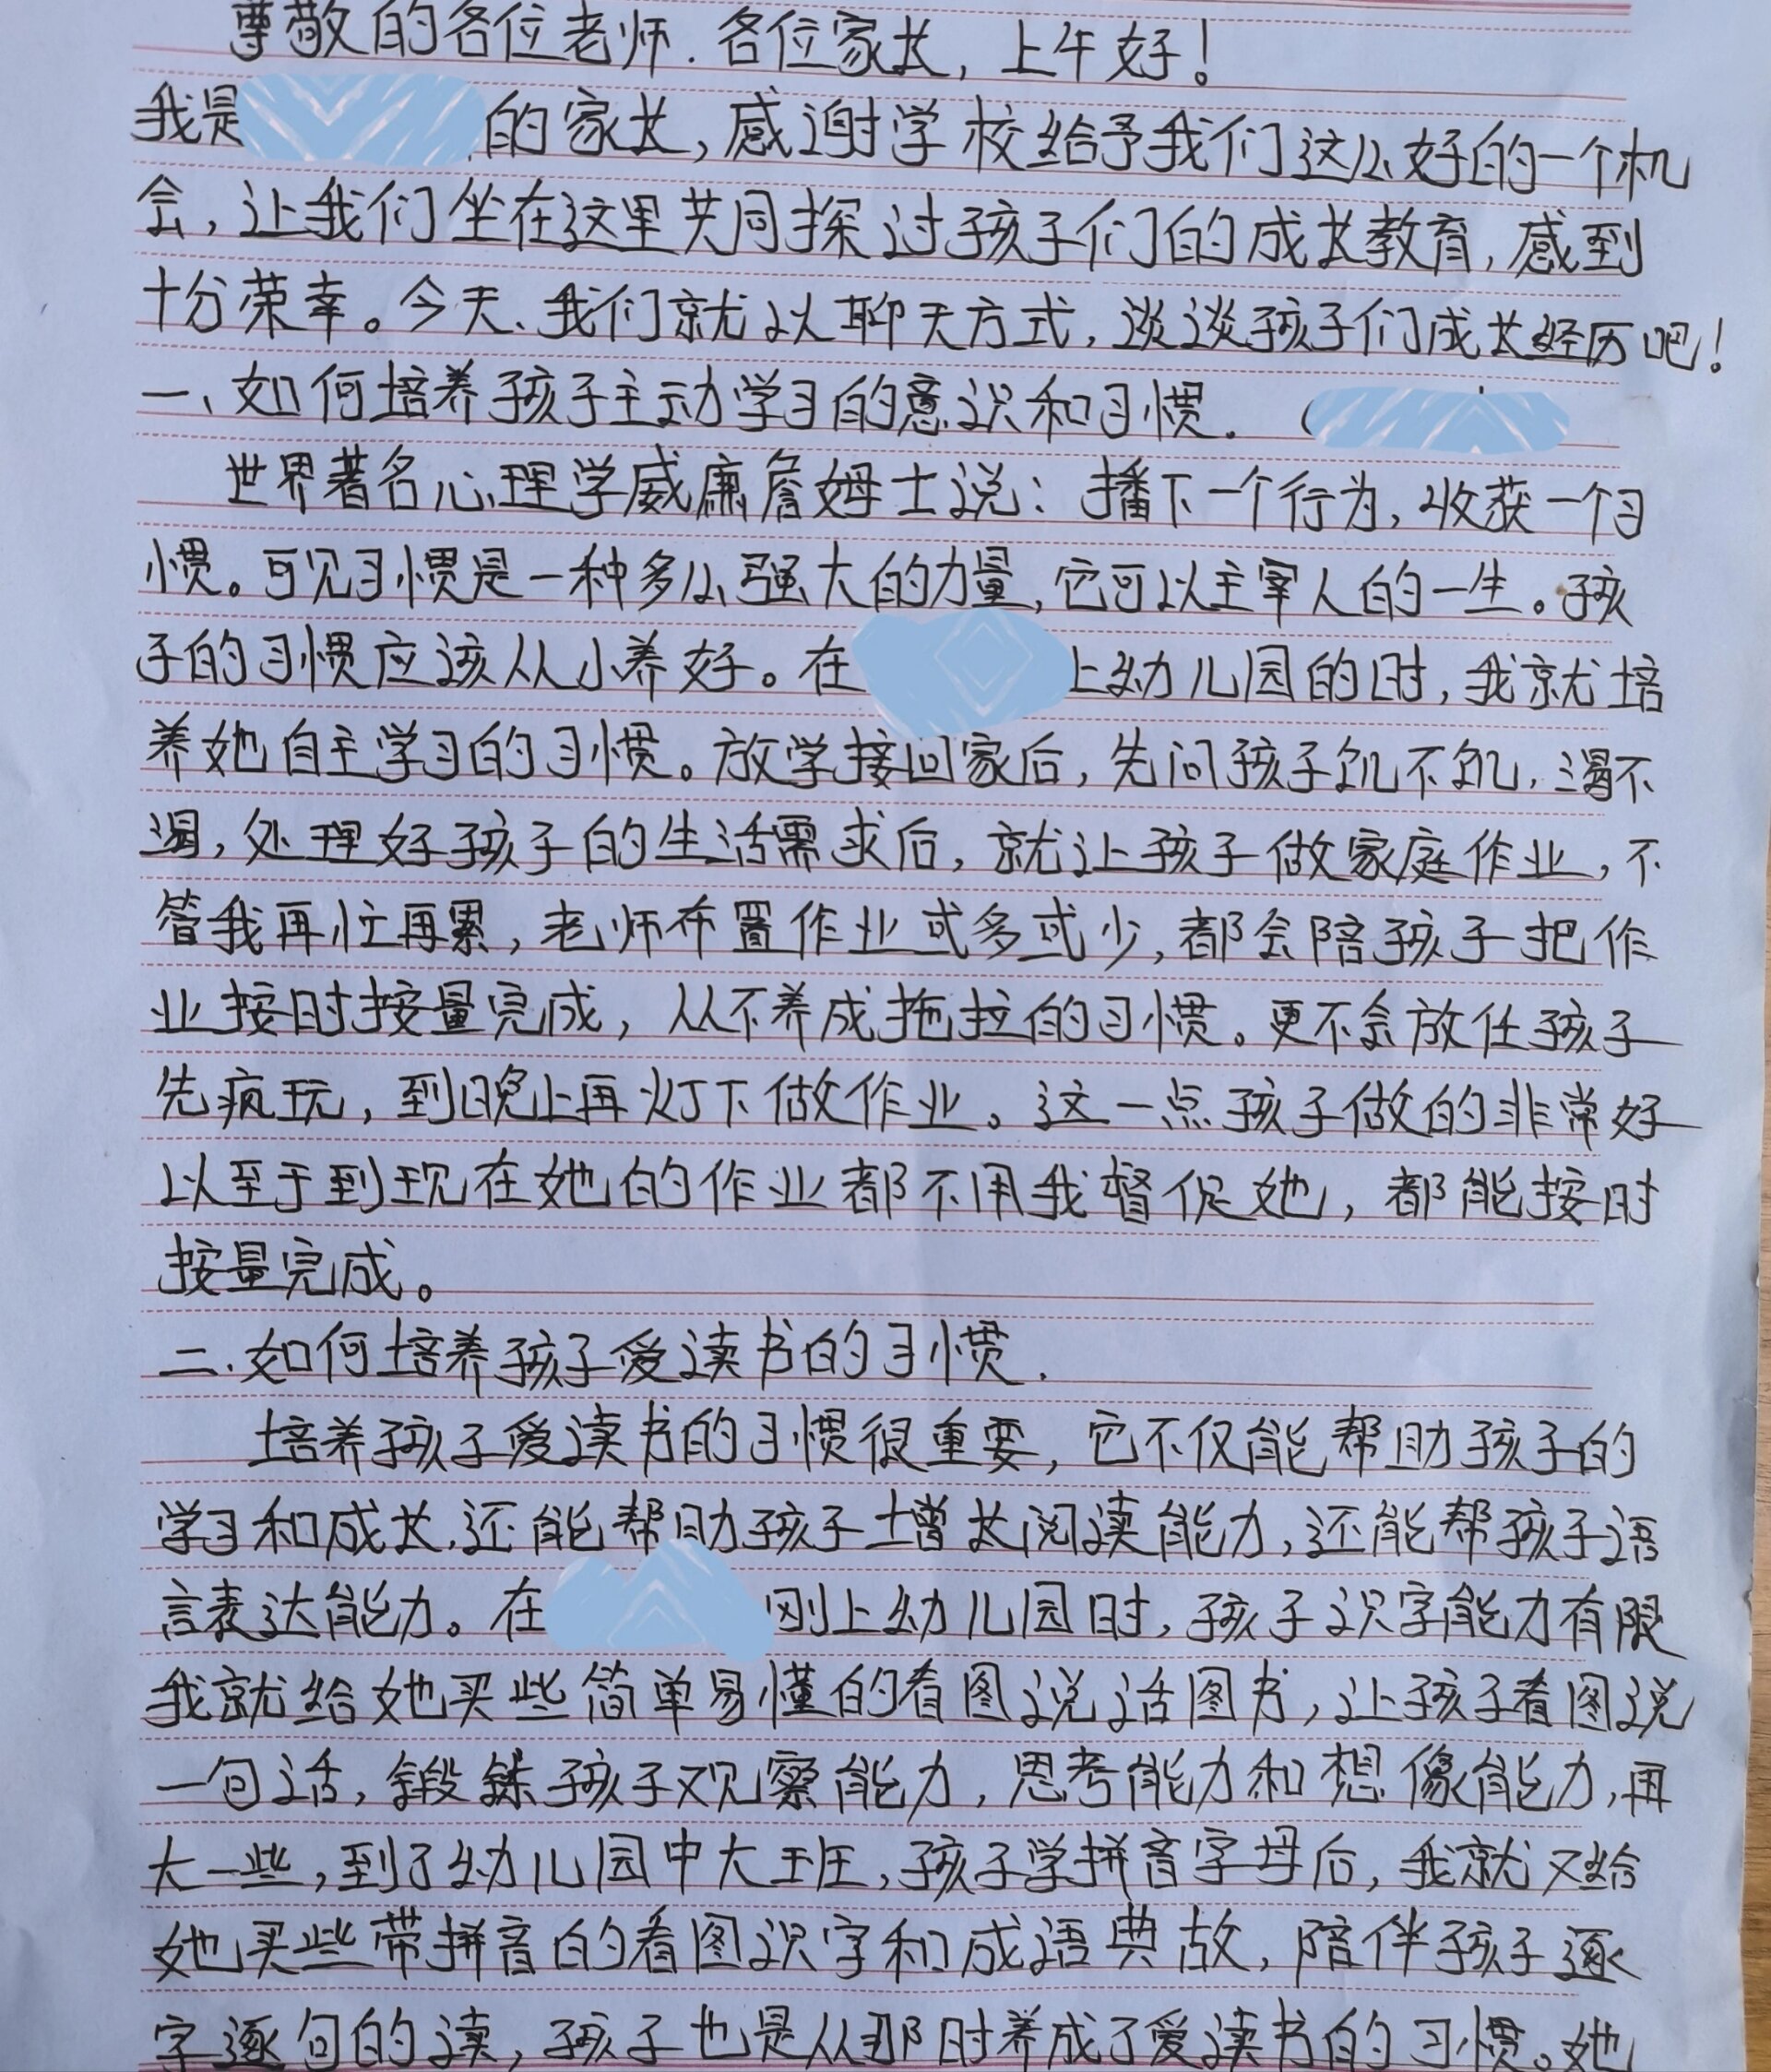 尊敬的各位老师.各位家长,上午好!
我是 的家长,感谢学校给予我们这么好的一个机
会,让我们坐在这里共同探讨孩子们的成长教育,感到
十分荣幸。今天、我们就以聊天方式,谈谈孩子们成长经历吧!
一、如何培养孩子主动学习的意识和习惯. (
世界著名心理学威廉詹姆士说:播下一个行为,收获一个习
惯。可见习惯是一种多么强大的力量,它可以主宰人的一生。孩
子的习惯应该从小养好。在 上幼儿园的时,我就培
养她自主学习的习惯。放学接回家后,先问孩子饥不饥,渴不
渴,处理好孩子的生活需求后,就让孩子做家庭作业,不
管我再忙再累,老师布置作业或多或少,都会陪孩子把作
业按时按量完成,从不养成拖拉的习惯。更不会放任孩子
先疯玩,到晚上再灯下做作业。这一点孩子做的非常好
以至于到现在她的作业都不用我督促她,都能按时
按量完成。
二.如何培养孩子爱读书的习惯.
培养孩子爱读书的习惯很重要,它不仅能帮助孩子的
学习和成长,还能帮助孩子增长阅读能力,还能帮孩子语
言表达能力。在 刚上幼儿园时,孩子识字能力有限
我就给她买些简单易懂的看图说话图书,让孩子看图说
一句话,锻鍊孩子观察能力,思考能力和想像能力,再
大一些,到了幼儿园中大班,孩子学拼音字母后,我就又给
她买些带拼音的看图识字和成语典故,陪伴孩子逐
字逐句的读,孩子也是从那时养成了爱读书的习惯。她